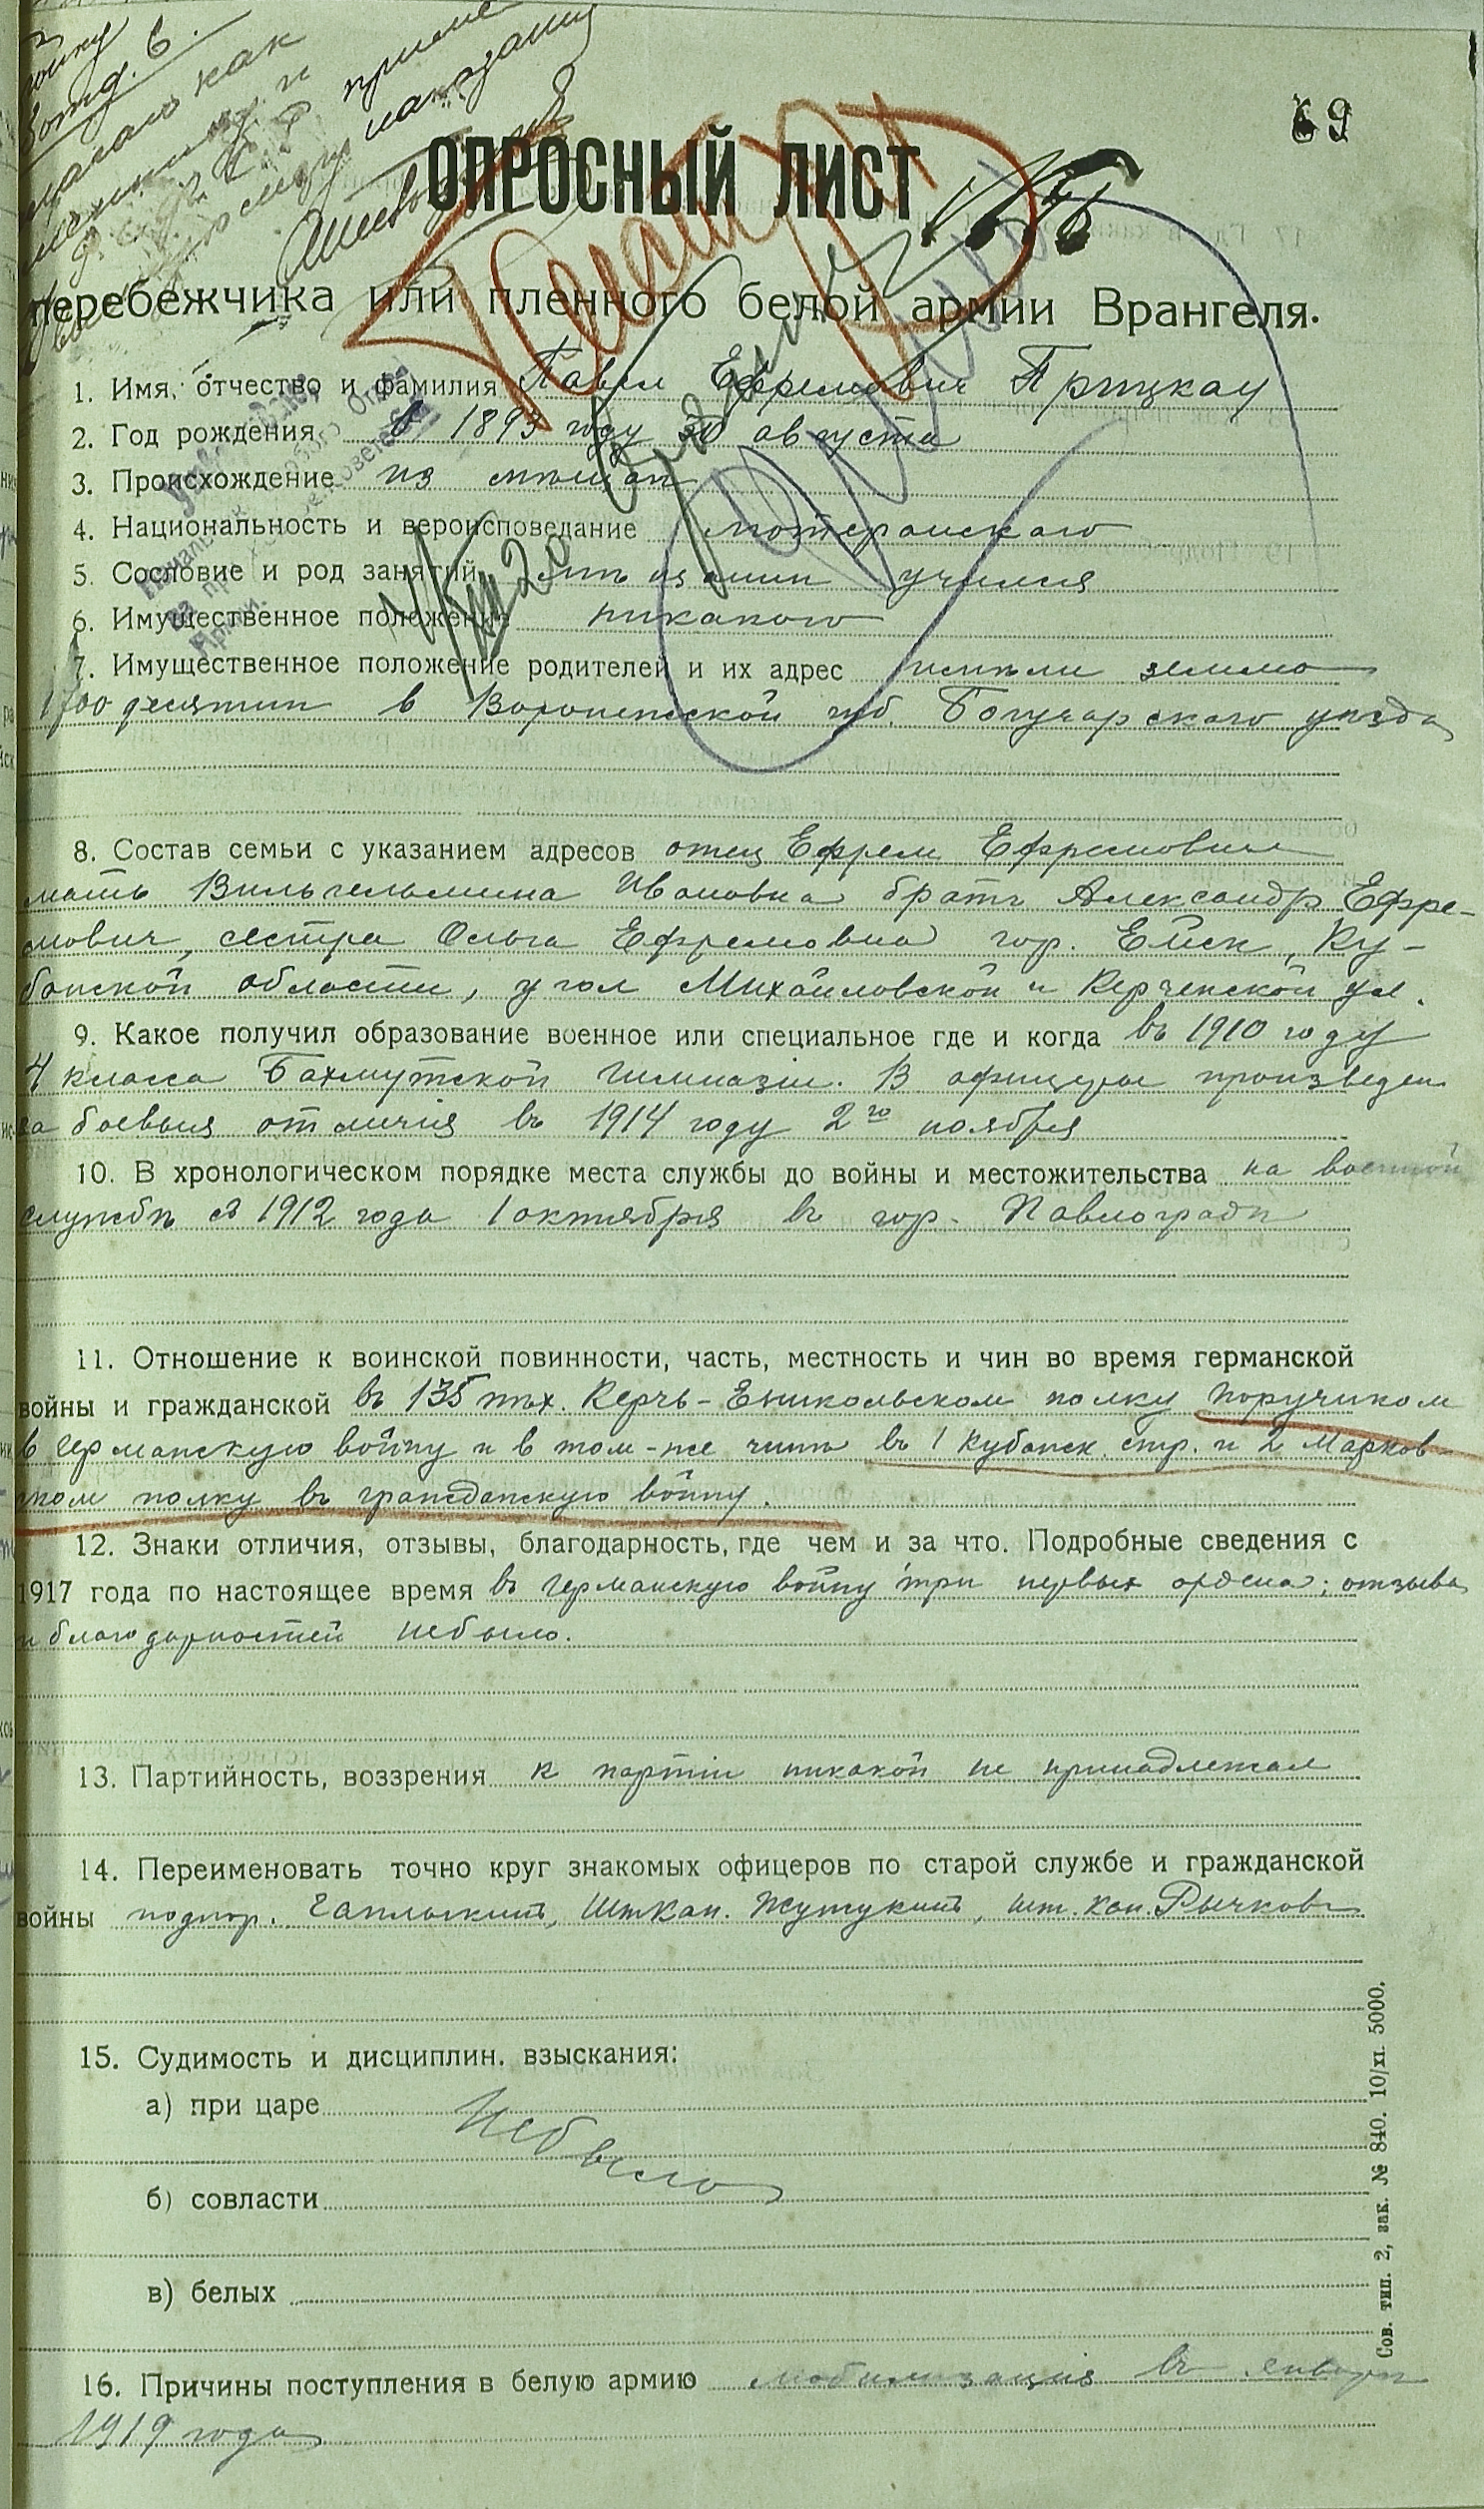 69
ОПРОСНЫЙ ЛИСТ
перебежчика или пленного белой армии Врангеля.
1. Имя, отчество и фамилия Павел Ефремович Прицкау
2. Год рождения в 1893 году 30 августа
3. Происхождение из мѣщан
4. Национальность и вероисповедание лютеранского
5. Сословие и род занятий мѣщанин учился
6. Имущественное положение никакого
7. Имущественное положение родителей и их адрес имѣли землю
десятин в Воронежской губ. Богучарского уѣзда
8. Состав семьи с указанием адресов отец Ефрем Ефремович
мать Вильгельмина Ивановна братъ Александр Ефре-
мович, сестра Ольга Ефремовна гор. Ейск, Ку-
банской области, угол Михайловской и Керченской ул.
9. Какое получил образование военное или специальное где и когда въ 1910 году
4 класса Бахмутской гимназии. В офицеры произведен
за боевыя отличія въ 1914 году 2го ноября
10. В хронологическом порядке места службы до войны и местожительства на военной
службѣ съ 1912 года 1 октября въ гор. Павлоградѣ
11. Отношение к воинской повинности, часть, местность и чин во время германской
войны и гражданской въ 135 пѣх. Керчь-Еникольском полку поручиком
в германскую войну и в том-же чинѣ въ 1 Кубанск. стр. и 2 Марков-
ском полку въ гражданскую войну.
12. Знаки отличия, отзывы, благодарность, где чем и за что. Подробные сведения с
1917 года по настоящее время въ германскую войну три первых ордена; отзыва
и благодарностей небыло.
13. Партийность, воззрения к партіи никакой не принадлежал
14. Переименовать точно круг знакомых офицеров по старой службе и гражданской
войны подпор. Гаплыкинъ, Шт.Кап. Жутукинъ, шт. кап. Рычковъ
15. Судимость и дисциплин. взыскания:
а) при царе
Небыло
б) совласти
в) белых
16. Причины поступления в белую армию мобилизація въ январѣ
1919 года
Сов. тип. 2, зак. № 840. 10/XI. 5000.